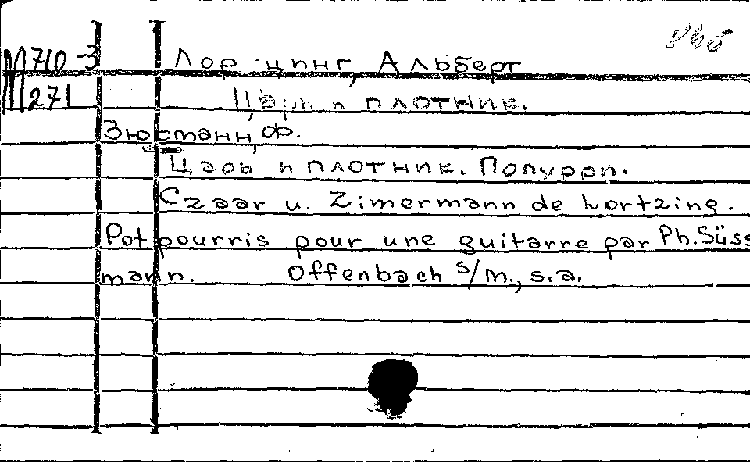 М710-3 Лорцинг, Альберт
М271 Царь и плотник.
Зюсманн, Ф.
Царь и плотник. Попурри.
Czaar u. Zimermann de Lortzing.
Pot pourris pour une guitarre par Ph. Süss
mann. Offenbach s/m., s.a.